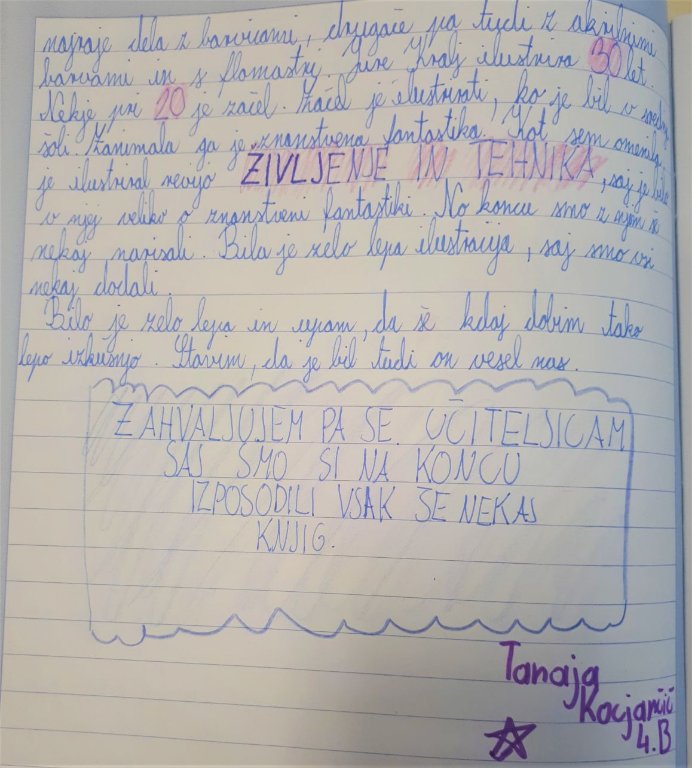 najraje dela z barvicami, drugače pa tudi z akrilnimi
barvami in s flomastri. Jure Kralj ilustrira 30 let.
Nekje pri 20 je začel. Začel je ilustrirati, ko je bil v srednji
šoli. Zanimala ga je znanstvena fantastika. Kot sem omenila,
je ilustriral revijo ŽIVLJENJE IN TEHNIKA, saj je bilo
v njej veliko o znanstveni fantastiki. No koncu smo z njim še
nekaj narisali. Bila je zelo lepa ilustracija, saj smo vsi
nekaj dodali.
Bilo je zelo lepo in upam, da še kdaj dobim tako
lepo izkušnjo. Stavim, da je bil tudi on vesel nas.
ZAHVALJUJEM PA SE UČITELJICAM
SAJ SMO SI NA KONCU
IZPOSODILI VSAK ŠE NEKAJ
KNJIG.
Tanaja
Kocjančič
4.B